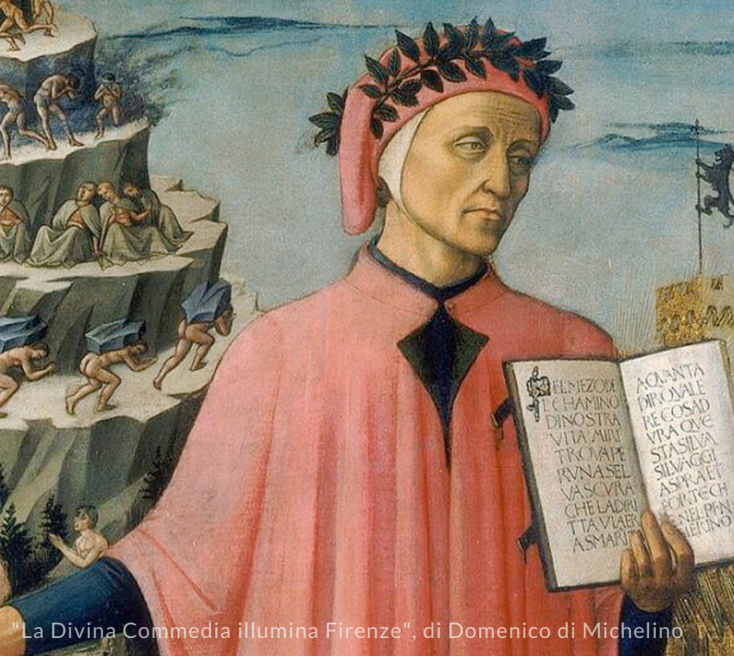 ELMEZODE
LCHAMINO
DINOSTRA
VITA MIRI
TROVAPE
RVNASEL
VASCVRA
CHELADIRI
TTAVIAER
ASMARIT
AQVANTA
DIRQVALE
RECOSAD
VRA QVE
STASILVA
SILVAGGI
ASPRAET
FORTECH
NELPEN
"La Divina Commedia illumina Firenze", di Domenico di Michelino